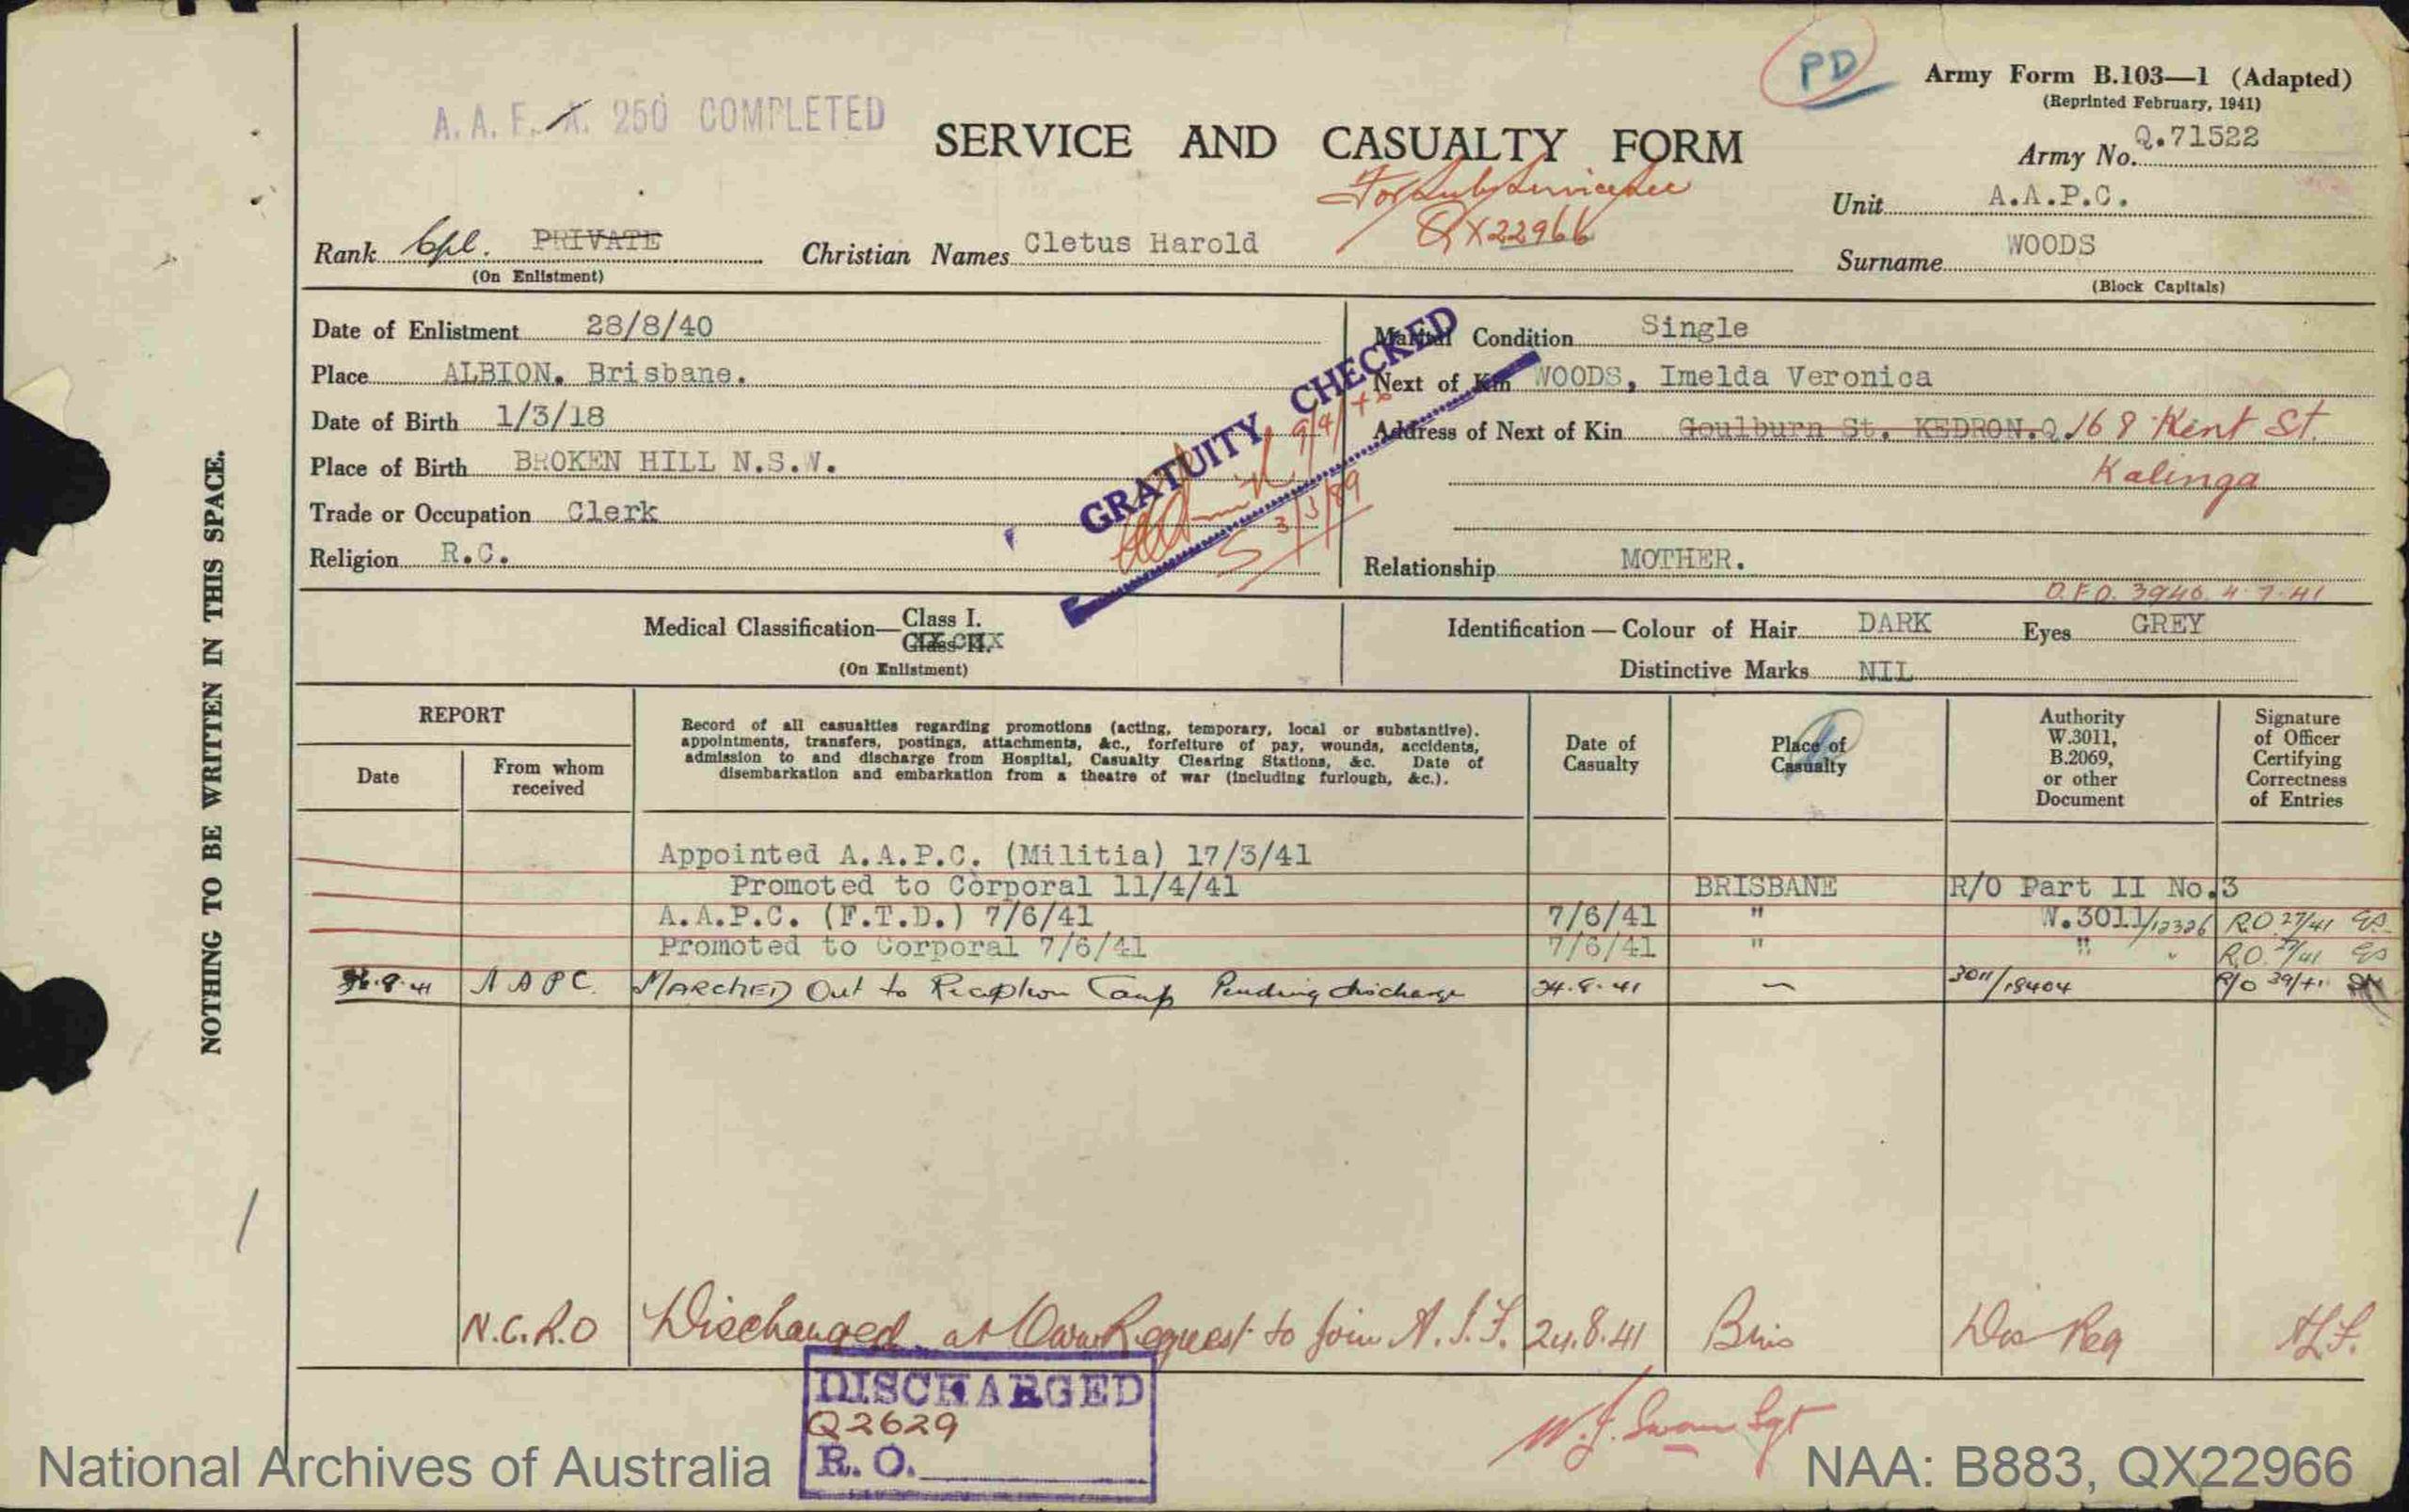 PD
Army Form B.103—1 (Adapted)
(Reprinted February, 1941)
A. A. F. A. 250 COMPLETED
SERVICE AND CASUALTY FORM
Army No. Q.71522
For
QX22966
Unit A.A.P.C.
Rank Cpl. PRIVATE
(On Enlistment)
Christian Names Cletus Harold
Surname WOODS
(Block Capitals)
Date of Enlistment 28/8/40
Place ALBION. Brisbane.
Date of Birth 1/3/18
Place of Birth BROKEN HILL N.S.W.
Trade or Occupation Clerk
Religion R.C.
GRATUITY CHECKED
Marital Condition Single
Next of Kin WOODS, Imelda Veronica
Address of Next of Kin Goulburn St. KEDRON.Q 168 Kent St.
Kalinga
Relationship MOTHER.
3946 4.7.41
Medical Classification— Class I.
Class II.
(On Enlistment)
Identification — Colour of Hair DARK Eyes GREY
Distinctive Marks NIL
REPORT
Date
From whom received
Record of all casualties regarding promotions (acting, temporary, local or substantive).
appointments, transfers, postings, attachments, &c., forfeiture of pay, wounds, accidents,
admission to and discharge from Hospital, Casualty Clearing Stations, &c. Date of
disembarkation and embarkation from a theatre of war (including furlough, &c.).
Date of Casualty
Place of Casualty
Authority W.3011, B.2069, or other Document
Signature of Officer Certifying Correctness of Entries
Appointed A.A.P.C. (Militia) 17/3/41
Promoted to Corporal 11/4/41 BRISBANE R/O Part II No.3
A.A.P.C. (F.T.D.) 7/6/41 7/6/41 " W.3011/12326 R.O 27/41
Promoted to Corporal 7/6/41 7/6/41 " " " R.O. 27/41
AAPC. MARCHED Out to Reception Camp Pending discharge 24.8.41 — 3011/18404 R/O 39/41
N.C.R.O Discharged at Own Request to join A.I.F. 24.8.41 Bris Dis Req
DISCHARGED
Q2629
R. O.
Sgt
NOTHING TO BE WRITTEN IN THIS SPACE.
National Archives of Australia
NAA: B883, QX22966